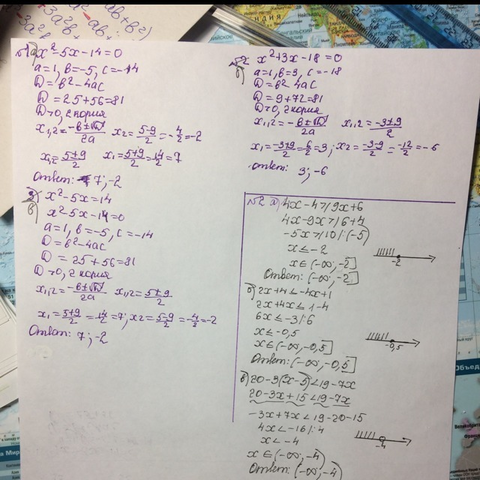 №1 а) x²-5x-14=0
a=1, b=-5, c=-14
D=b²-4ac
D=25+56=81
D>0, 2 корня
x₁,₂=-b±√D/2a x₂=5-9/2=-4/2=-2
x₁=5+9/2 x₁=5+9/2=14/2=7
Ответ: 7; -2
в) x²-5x=14
x²-5x-14=0
a=1, b=-5, c=-14
D=b²-4ac
D=25+56=81
D>0, 2 корня
x₁,₂=-b±√D/2a x₁,₂=5±9/2
x₁=5+9/2=14/2=7; x₂=5-9/2=-4/2=-2
Ответ: 7; -2
б) x²+3x-18=0
a=1, b=3, c=-18
D=b²-4ac
D=9+72=81
D>0, 2 корня
x₁,₂=-b±√D/2a x₁,₂=-3±9/2
x₁=-3+9/2=6/2=3; x₂=-3-9/2=-12/2=-6
Ответ: 3; -6
№2 а) 4x-4≥9x+6
4x-9x≥6+4
-5x≥10 |:(-5)
x≤-2
-2
x∈(-∞;-2]
Ответ: (-∞;-2]
б) 2x+4≤-4x+1
2x+4x≤1-4
6x≤-3 |:6
x≤-0,5
-0,5
x≤(-∞;-0,5]
Ответ: (-∞;-0,5]
в) 20-3(x-5)<19-7x
20-3x+15<19-7x
-3x+7x<19-20-15
4x<-16 |:4
x<-4
-4
x∈(-∞;-4)
Ответ: (-∞;-4)